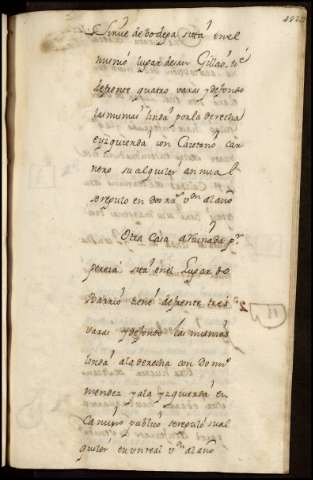 Sirve de bodega sita en el
mismo lugar de san Gillao, tie
de frente quatro varas y de fondo
las mismas linda por la derecha
e yzquierda con Caietano Car
nero su alquiler annual
se reputo en dos Rs vn al año
Otra Casa arruinada pr
pereia sita en el Lugar do
Barrio tiene de frente tres
varas y de fondo las mismas
linda a la derecha con Domo
mendez y a la yzquierda en
Camino publico se reputo su al
quiler en un real vn al año